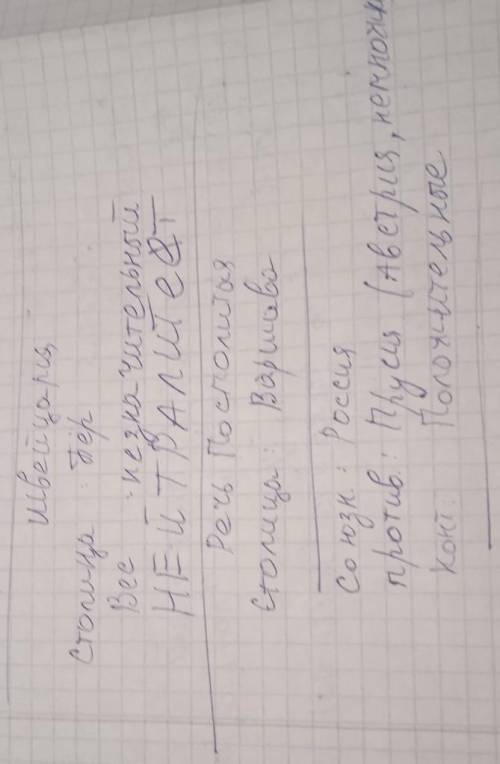 Швейцария
Столица : Бер
Вес незначительный
НЕЙТРАЛИТЕТ
Речь Посполитая
Столица : Варшава
Союзн.: Россия
против.: Прусия (Австрия, немножк
Конт: Положительные